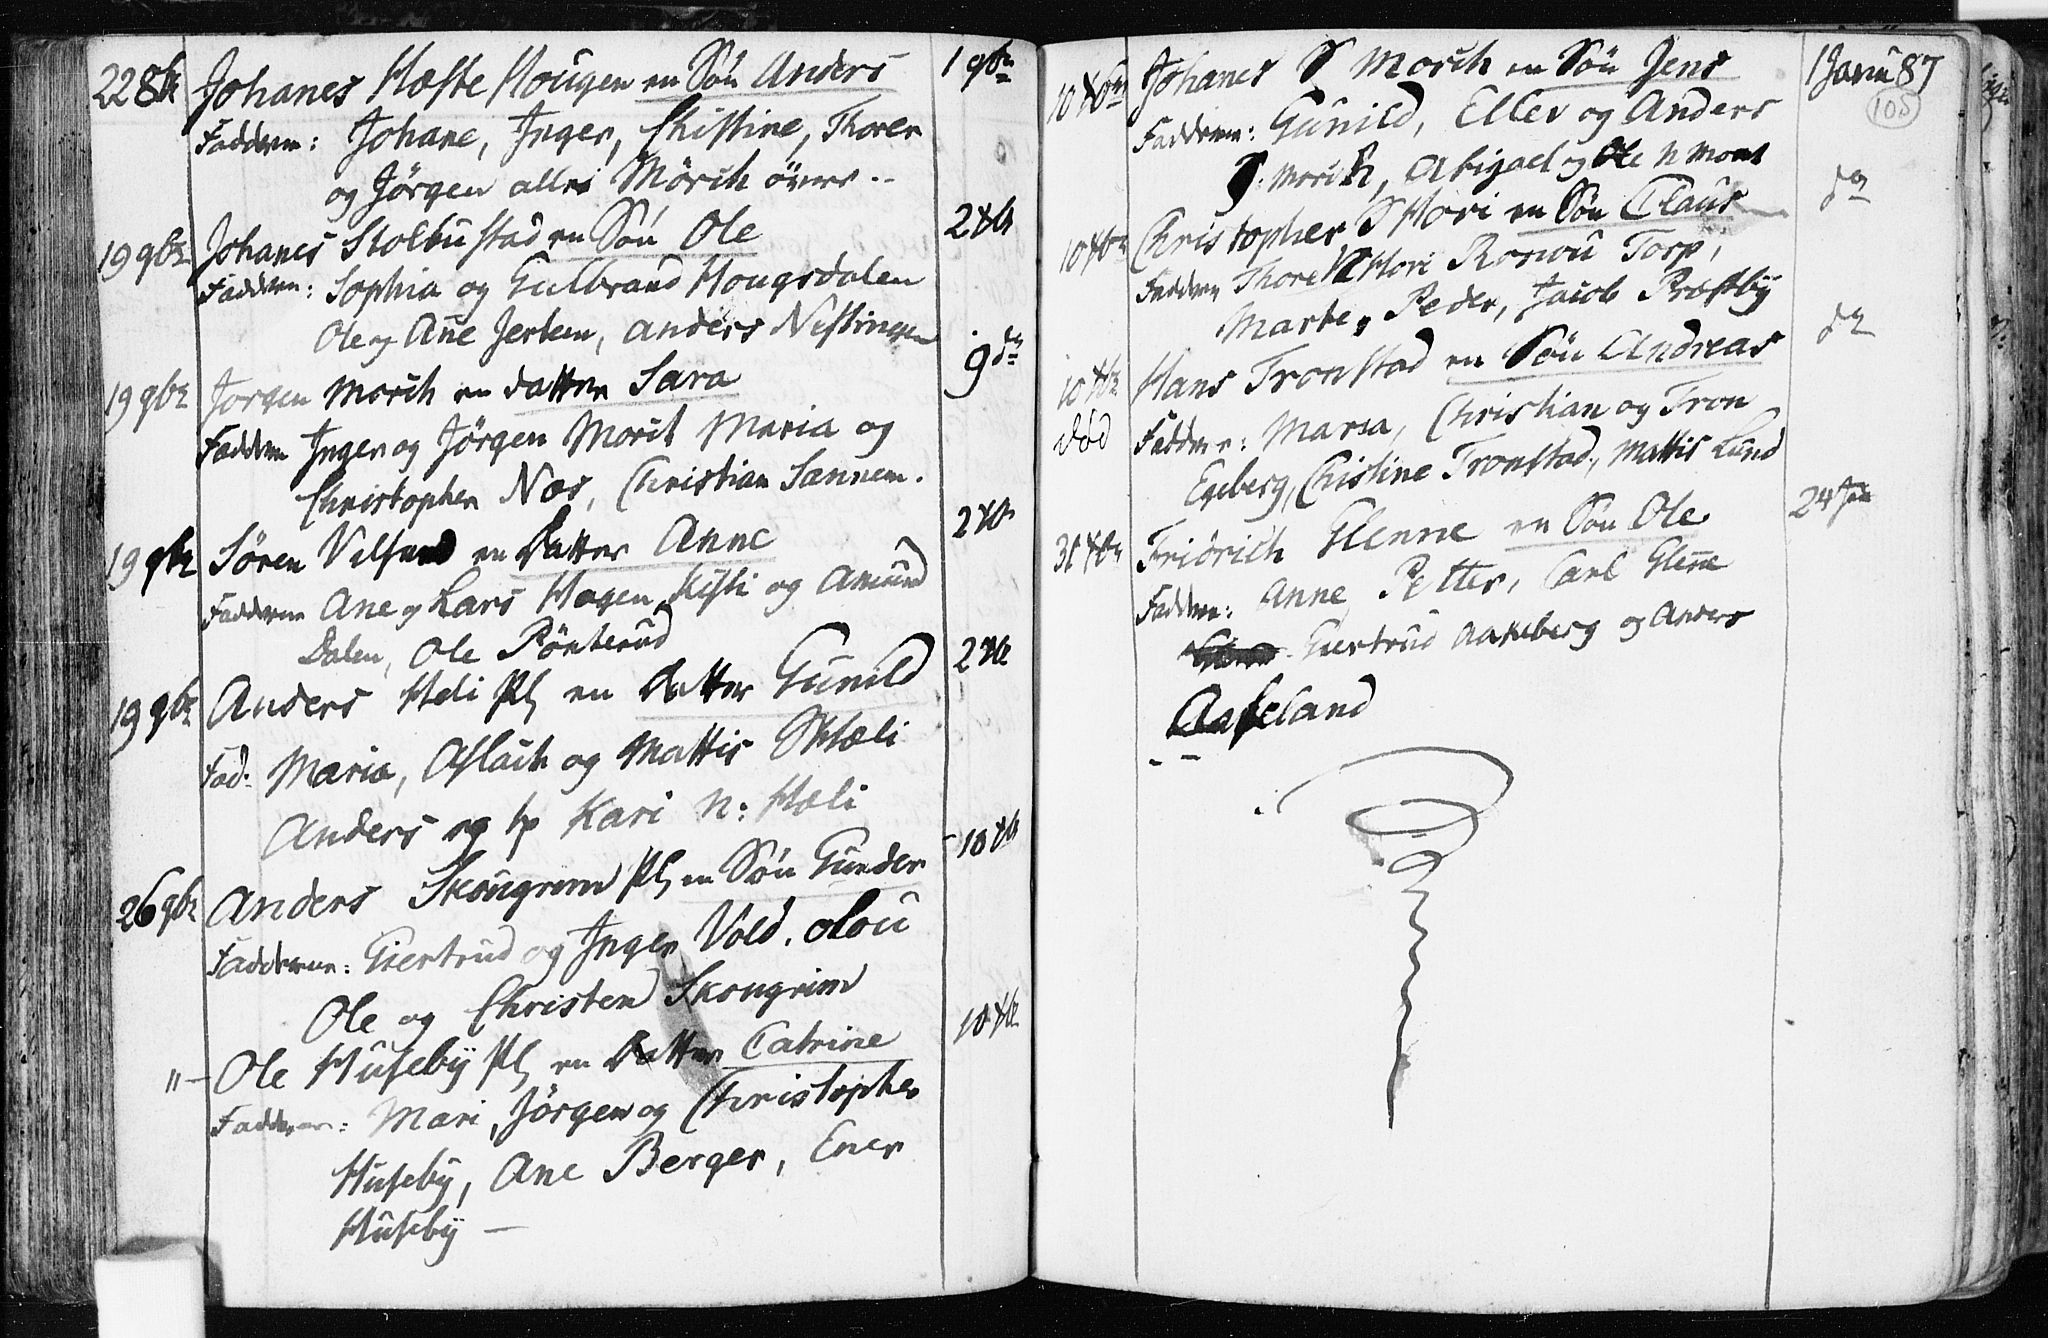 22 8br Johanes Hæste Hougen en Sön Anders 1 9br
Faddere: Johane, Inger, Christine, Thorer
og Jørgen alle Mörch övre
19 9br Johanes Stolbustad en Sön Ole 2 Xbr
Faddere: Sophia og Gulbrand Hougsdalen
Ole og Ane Jerlem, Anders Nistingen
19 9br Jorgen Morch en datter Sara 9 do
Faddere Inger og Jörgen Morch Maria og
Christopher Næs, Christian Sannem.
19 9br Sören Velsund en Datter Anne 2 Xbr
Faddere Ane og Lars Hagen Kisti og Amund
Dalen, Ole Pönterud
19 9br Anders Heli Pl en Datter Gunild 2 Xbr
Fad: Maria, Aslach og Mattis Skæli
Anders og Kari N: Hæli
26 9br Anders Skougrim Pl en Sön Gunder 10 Xbr
Faddere: Giertrud og Inger Vold. Olou
Ole og Christen Skougrim
"– Ole Huseby Pl en Datter Catrine 10 Xbr
Faddere: Mari, Jörgen og Christopher
Huseby, Ane Berger, Ener
Huseby –
10 Xbr Johanes S Morch en Sön Jens 1 Janu 87
105
Faddere: Gunild, Eller og Anders
S: Morch, Abigael og Ole N Morch
10 Xbr Christopher S Hori en Sön Claus do
Faddere Thore N Hori Ronnou Torp,
Marte, Peder, Jacob Præstby
10 Xbr Hans Tronstad en Sön Andreas do
död Faddere: Maria, Christian og Tron
Egeberg, Christine Tronstad, Mattis Lund
31 Xbr Fridrich Glenne en Sön Ole 24 Jan
Faddere: Anne, Petter, Carl Glene
Giertrud Aakeberg og Anders
Aaseland